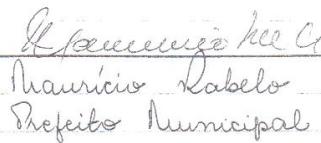 Maurício Rabelo
Prefeito Municipal